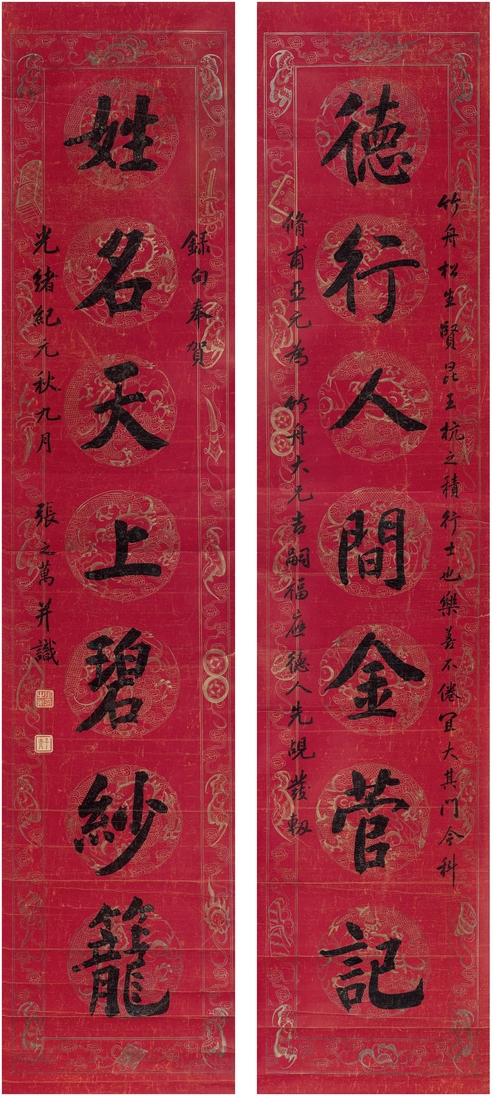 竹舟松生賢昆玉杭之積行士也樂善不倦宜大其門今科
徳行人間金菅記
脩甫亞元為竹舟大兄吉嗣福應德人先覘發軔
録句奉賀
姓名天上碧紗籠
光緒紀元秋九月 張之萬并識